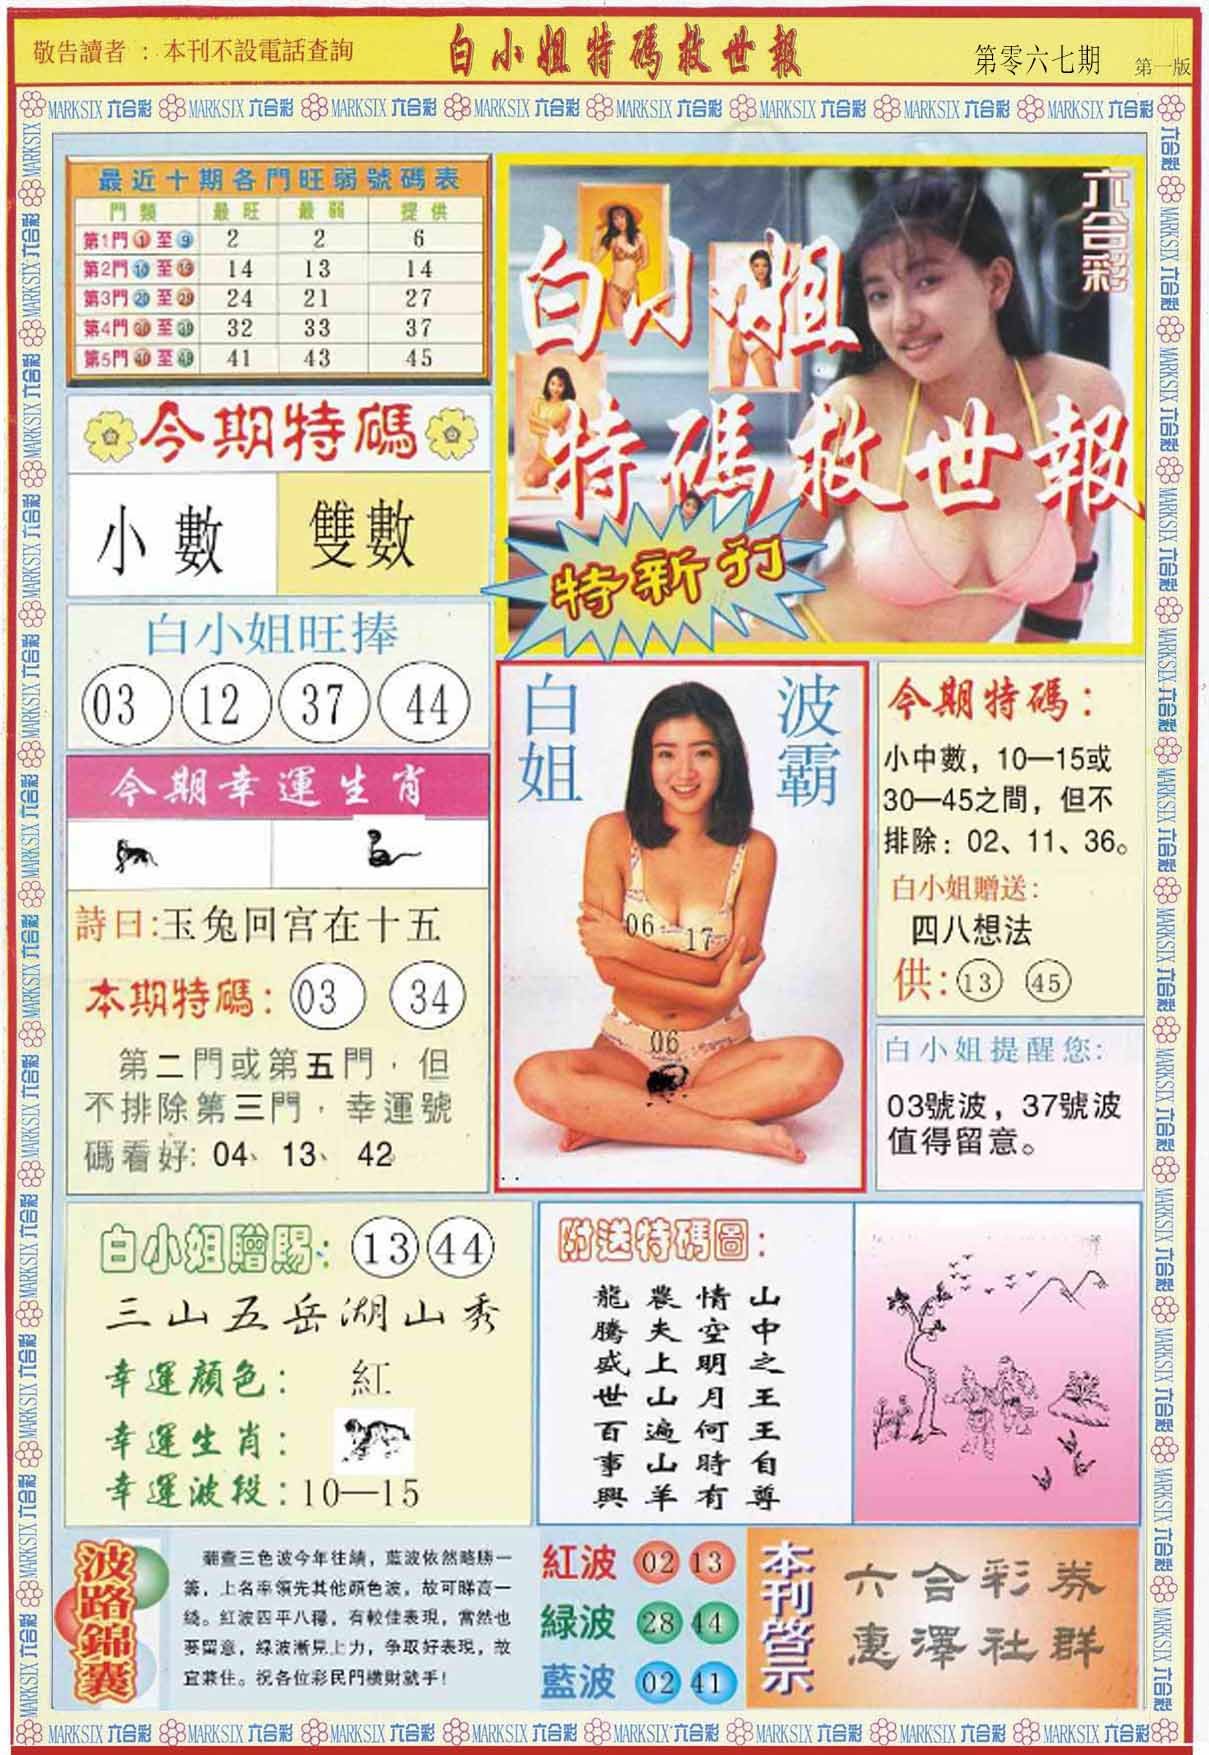 敬告讀者 : 本刊不設電話查詢
白小姐特碼救世報
第零六七期
第一版
MARKSIX 六合彩 MARKSIX 六合彩 MARKSIX 六合彩 MARKSIX 六合彩 MARKSIX 六合彩 MARKSIX 六合彩 MARKSIX 六合彩 MARKSIX 六合彩
最近十期各門旺弱號碼表
門類 最旺 最弱 提供
第1門 1 至 9 2 2 6
第2門 10 至 19 14 13 14
第3門 20 至 29 24 21 27
第4門 30 至 39 32 33 37
第5門 40 至 49 41 43 45
六合彩
白小姐
特碼救世報
特新刊
今期特碼
小數 雙數
白小姐旺捧
03 12 37 44
今期幸運生肖
詩曰:玉兔回宮在十五
本期特碼: 03 34
第二門或第五門，但
不排除第三門，幸運號
碼看好: 04、13、42
白姐
波霸
06
17
06
今期特碼：
小中數，10—15或
30—45之間，但不
排除：02、11、36。
白小姐贈送:
四八想法
供: 13 45
白小姐提醒您:
03號波，37號波
值得留意。
白小姐贈賜: 13 44
三山五岳湖山秀
幸運顏色: 紅
幸運生肖:
幸運波段: 10—15
附送特碼圖:
山中之王王自尊
情空明月何時有
農夫上山遍山羊
龍騰盛世百事興
波路錦囊
翻查三色波今年往績，藍波依然略勝一
籌，上名率領先其他顏色波，故可睇高一
綫。紅波四平八穩，有較佳表現，當然也
要留意，綠波漸見上力，爭取好表現，故
宜兼住。祝各位彩民門橫財就手!
紅波 02 13
綠波 28 44
藍波 02 41
本刊啓示
六合彩券
惠澤社群
MARKSIX 六合彩 MARKSIX 六合彩 MARKSIX 六合彩 MARKSIX 六合彩 MARKSIX 六合彩 MARKSIX 六合彩 MARKSIX 六合彩 MARKSIX 六合彩